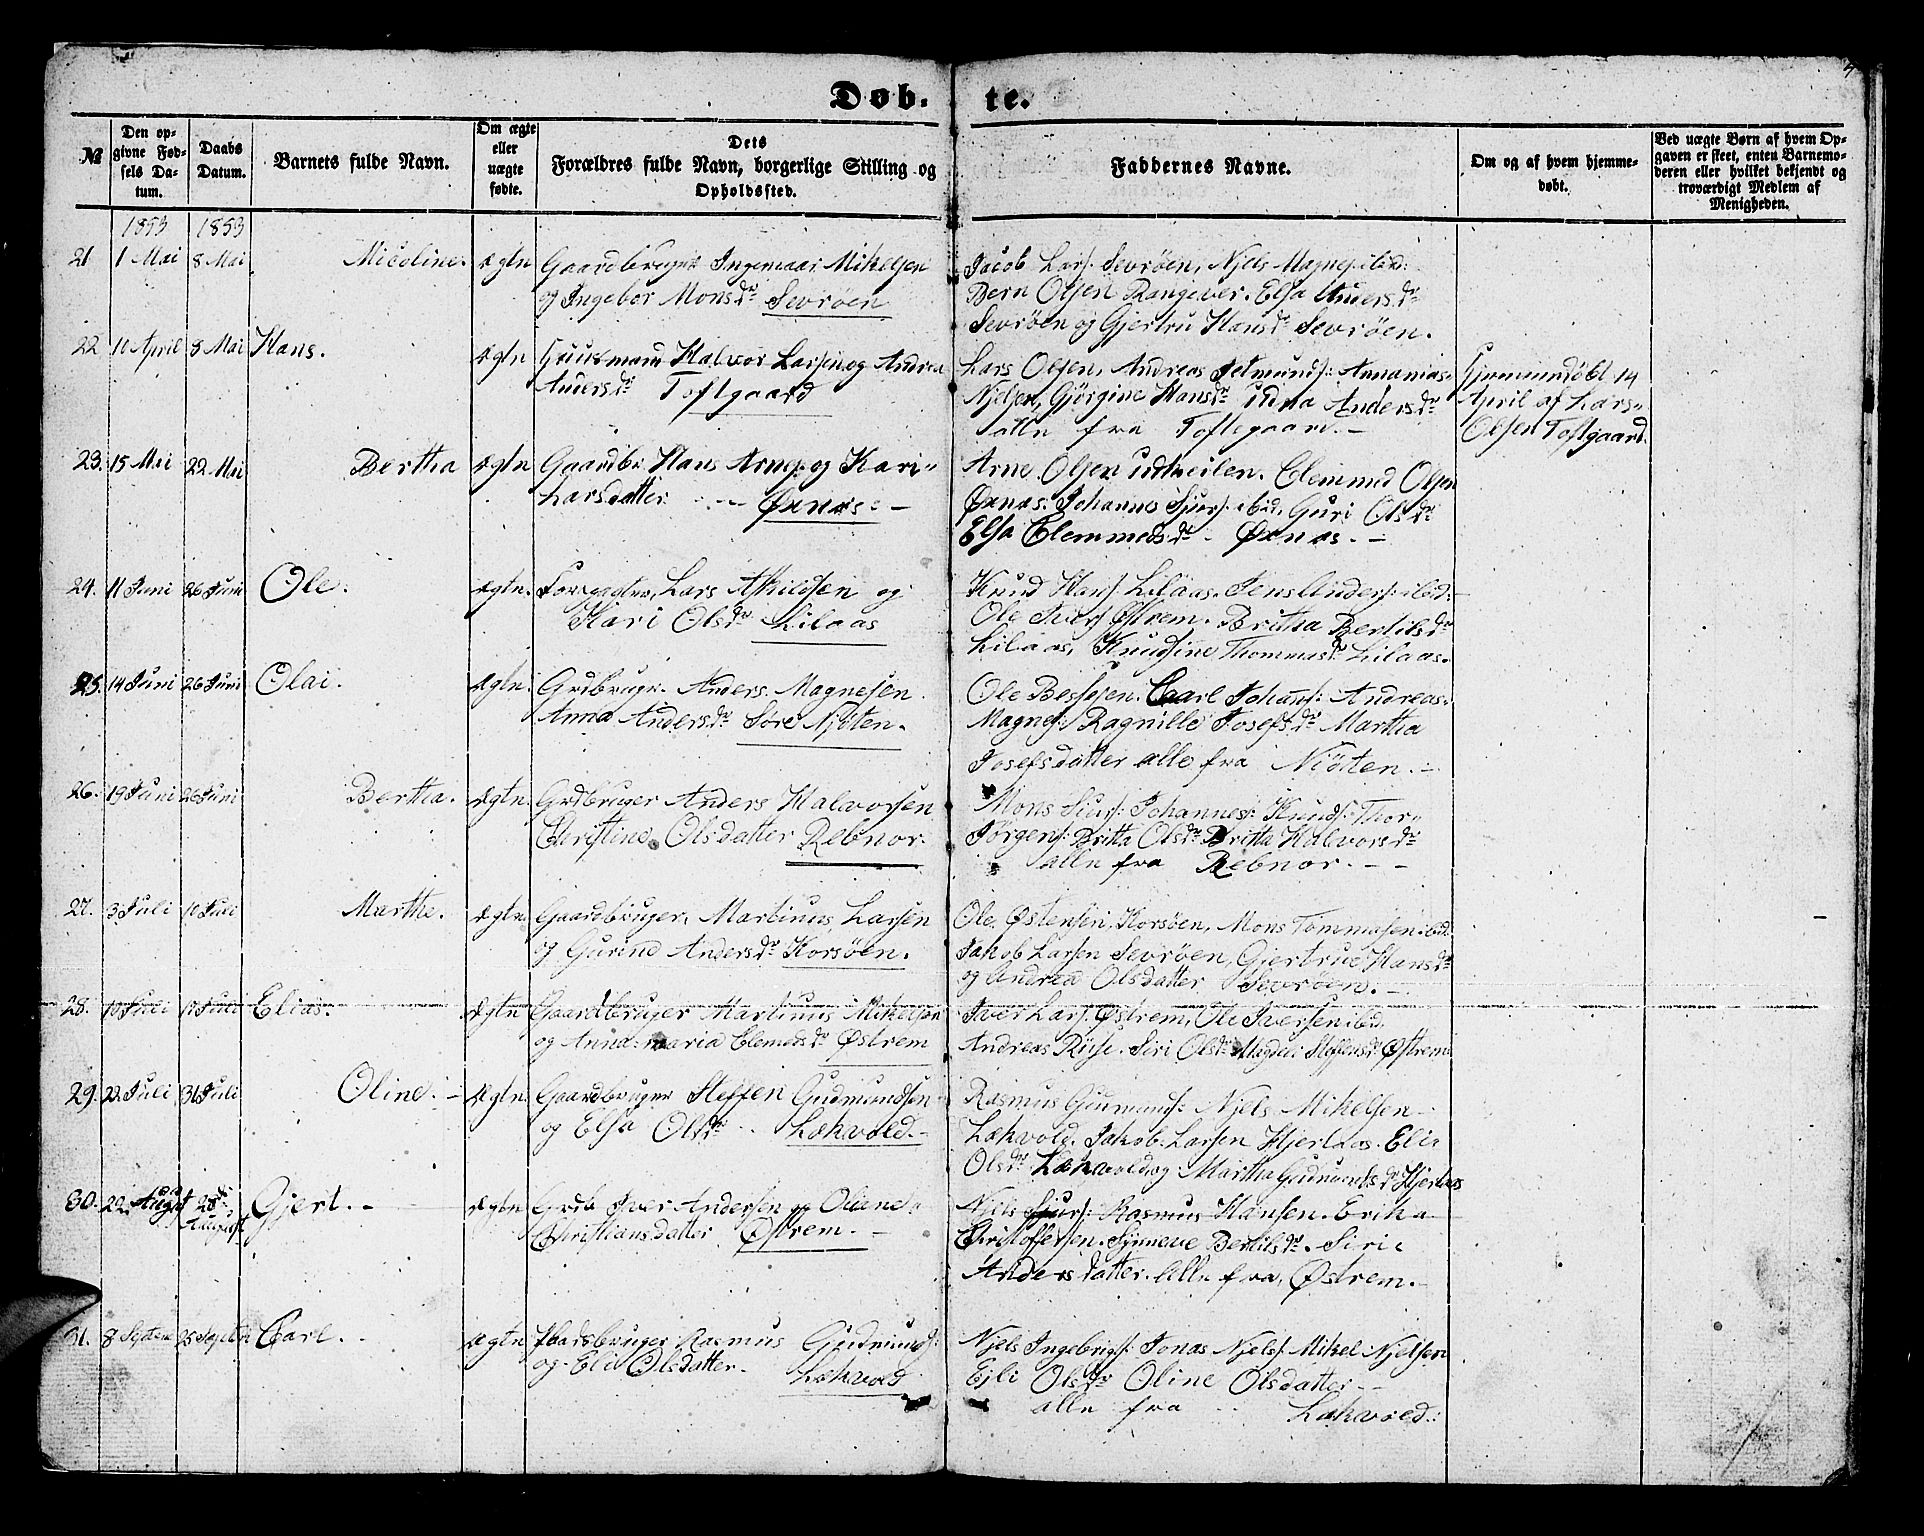 4
Døb- te.
№
Den opgivne Fødsels Datum.
Daabs Datum.
Barnets fulde Navn.
Om ægte eller uægte fødte.
Dets Forældres fulde Navn, borgerlige Stilling og Opholdssted.
Faddernes Navne.
Om og af hvem hjemmedøbt.
Ved uægte Børn af hvem Opgaven er skeet, enten Barnemoderen eller hvilket bekjendt og troværdigt Medlem af Menigheden.
1853 1853
21 1 Mai 8 Mai Micoline. Ægte Gaardbruger Ingemaar Mikelsen
og Ingebor Monsdr Sevrøen
Jacob Lars: Sevrøen, Njels Magnes: ibid:
Bern Olsen Rangever. Elsa Andersdr
Sevrøen og Gjertru Hansdr Sevrøen.
22 11 April 8 Mai Hans. Ægte Huusmand Halvor Larsen og Andrea
Andersdr Toftgaard
Lars Olsen, Andreas Ammanias
Njelsen, Gjørgine Hansdr Anna Andersdr
alle fra Toftegaard.-
Hjemmedøbt 14
April af Lars
Olsen Toftgaard.
23. 15 Mai 22 Mai Bertha Ægte Gaardbr Hans Arnes: og Kari
Larsdatter - Øxnæs:-
Arne Olsen Clemmed Olsen
Øxnæs. Johannes Sjurs: ibid, Guri Olsdr
Elsa Clemmedsdr - Øxnæs. -
24. 11 Juni 26 Juni Ole. Ægte. Forpagter, Lars Askildsen og
Kari Olsdr Lilaas
Knud Hans: Lilaas. Jens Anders: ibid:-
Ole Ivers: Østrem. Britha Bertilsdr
Lilaas, Knudsine Thommasdr Lilaas.
25. 14 Juni 26 Juni Olai. Ægte. Grdbrugr. Anders Magnesen
Anna Andersdr Søre Njøten.
Ole Carl Johans: Andreas
Magnes: Ragnille Josefsdr Martha
Josefsdatter alle fra Niøten.-
26. 19 Juni 26 Juni Bertha. Ægte Grdbruger Anders Halvorsen
Christine Olsdatter Rebnor.
Mons Siurs: Johannes: Knuds: Thor
Jørgens: Britta Olsdr Britta Halvorsdr
alle fra Rebnor. - -
27. 3 Juli 10 Juli Marthe. Ægte. Gaardbruger, Martinus, Larsen
og Gurine Andersdr Korsøen.
Ole Østensen, Korsøen, Mons Tommasen ibid.
Jakob Larsen Sevrøen, Gjertrue Hansdr
og Andrea Olsdatter Sevrøen.-
28. 10 Juli 17 Juli Elias. Ægte Gaardbruger Martinus Mikelsen
og Anna-maria Clemedsdr Østrem
Iver Lars: Østrem, Ole Iversen ibid.
Andreas Riise. Siri Olsdr Magdeli Steffensdr Østrem
29. 22 Juli 31 Juli Oline. - Ægte. Gaardbruger Steffen Gudmundsen
og Elsa Olsdr Lækvold.-
Rasmus Giumunds: Njels Mikelsen
Lækvold. Jakob Larsen Hjertaas. Elia
Olsdr Lækvold, og Martha Gudmundsdr Hjertaas
30. 22 August 28 August Gjert. - Ægte Grdb Iver Andersen og Oliane
Christiansdatter Østrem. -
Njels Sjurs: Rasmus Hansen. Erika
Christoffersen. Synneve Bertilsdr. Siri
Andersdatter. alle fra, Østrem.-
31. 8 Septem 25 Septem Carl. Ægte Pladsbruger Rasmus Gudmunds:
og Eli Olsdatter- Lækvold
Njels Ingebrigs: Jonas Njels: Mikel Njelsen
Ejli Olsdr Oline Olsdatter -
alle fra Lækvold.: